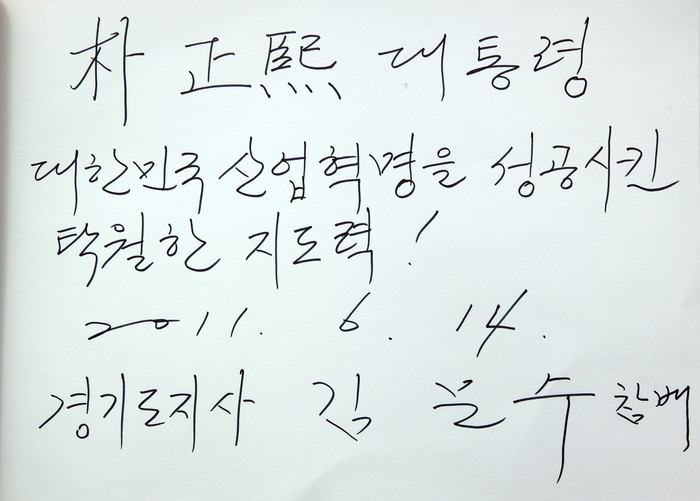 朴正熙 대통령
대한민국 산업혁명을 성공시킨
탁월한 지도력!
2011. 6. 14.
경기도지사 김문수 참배